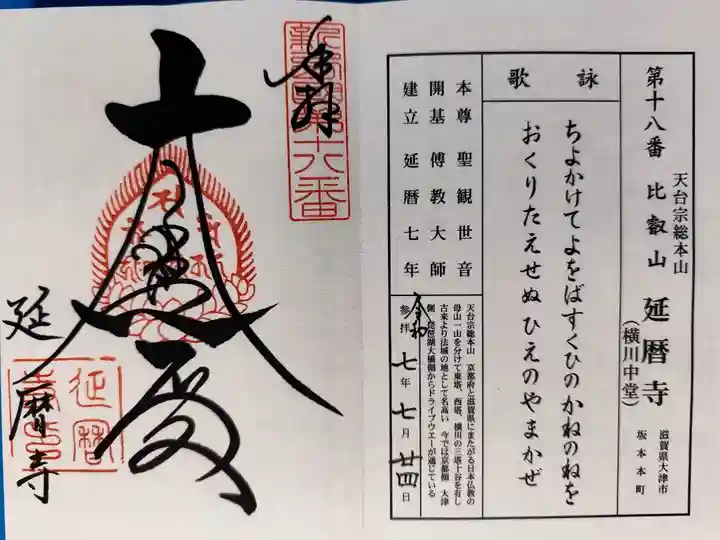 第十八番 比叡山 延暦寺
天台宗総本山
(横川中堂)
滋賀県大津市
坂本本町
詠歌
ちよかけてよをばすくひのかねのねを
おくりたえせぬひえのやまかぜ
本尊 聖観世音
開基 傳教大師
建立 延暦七年
天台宗総本山 京都府と滋賀県にまたがる日本仏教の
母山一山を分けて東塔、西塔、横川の三塔十谷を有し
古来より法城の地として名高い 今では京都側 大津
側 琵琶湖大橋側からドライブウエーが通じている
令和
参拝 七年 七月 廿四日
奉拝
第十八番
大悲殿
延暦寺
延暦